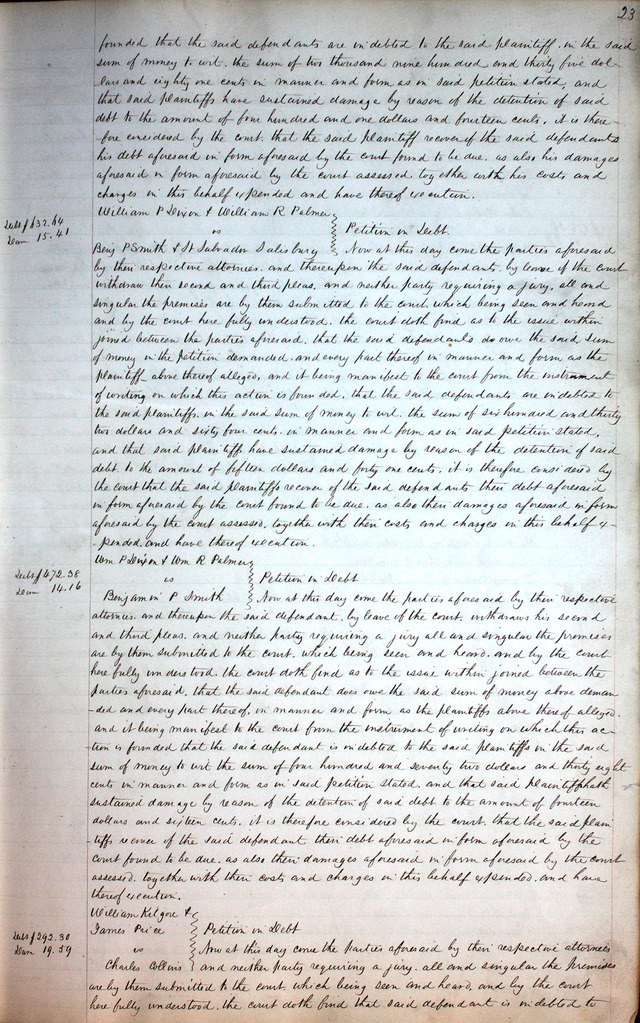 23
founded that the said defendants are indebted to the said plaintiff. in the said
sum of money to wit. the sum of two thousand nine hundred and thirty five dol-
lars and eighty one cents in manner and form as in said petition stated, and
that said plaintiffs have sustained damage by reason of the detention of said
debt to the amount of four hundred and one dollars and fourteen cents. it is there-
fore considered by the court. that the said plaintiff recover of the said defendants
his debt aforesaid in form aforesaid by the court found to be due. as also his damages
aforesaid in form aforesaid by the court assessed. together with his costs and
charges in this behalf expended and have thereof execution.
William P Dixon & William R Palmer
Debt $632.64
Dam 15.41
vs
Petition in Debt.
Benj P Smith & St Salvador Salisbury
Now at this day come the parties aforesaid
by their respective attornies. and thereupon the said defendants. by leave of the court
withdraw their second and third pleas. and neither party requiring a jury. all and
singular the premises are by them submitted to the court. which being seen and heard
and by the court here fully understood. the court doth find as to the issue within
joined between the parties aforesaid, that the said defendants do owe the said sum
of money in the Petition demanded. and every part thereof in manner and form as the
plaintiff above thereof alleged, and it being manifest to the court from the instrument
of writing on which this action is founded. that the said defendants are indebted to
the said plaintiffs. in the said sum of money to wit. the sum of six hundred and thirty
two dollars and sixty four cents. in manner and form as in said petition stated,
and that said plaintiffs have sustained damage by reason of the detention of said
debt. to the amount of fifteen dollars and forty one cents. it is therefore considered by
the court that the said plaintiffs recover of the said defendants their debt aforesaid
in form aforesaid by the court found to be due. as also their damages aforesaid in form
aforesaid by the court assessed, together with their costs and charges in this behalf ex-
pended. and have thereof execution.
Wm P Dixon & Wm R Palmer
Debt $472.38
Dam 14.16
vs
Petition in Debt
Benjamin P Smith
Now at this day come the parties aforesaid by their respective
attornies. and thereupon the said defendant. by leave of the court. withdraws his second
and third pleas. and neither party requiring a jury all and singular the premises
are by them submitted to the court. which being seen and heard. and by the court
here fully understood. the court doth find as to the issue within joined between the
parties aforesaid, that the said defendant does owe the said sum of money above deman
ded and every part thereof, in manner and form as the plaintiffs above thereof alleged.
and it being manifest to the court from the instrument of writing on which this ac-
tion is founded that the said defendant is indebted to the said plaintiffs in the said
sum of money to wit the sum of four hundred and seventy two dollars and thirty eight
cents in manner and form as in said petition stated. and that said plaintiff hath
sustained damage by reason of the detention of said debt to the amount of fourteen
dollars and sixteen cents. it is therefore considered by the court. that the said plain
tiffs recover of the said defendant their debt aforesaid in form aforesaid by the
court found to be due. as also their damages aforesaid in form aforesaid by the court
assessed. together with their costs and charges in this behalf expended. and have
thereof execution.
William Kilgore &
James Price
Petition in Debt
Debt $292.30
Dam 19.59
vs
Now at this day come the parties aforesaid by their respective attornies
Charles Collins
and neither party requiring a jury. all and singular the premises
are by them submitted to the court. which being seen and heard, and by the court
here fully understood. the court doth find that said defendant is indebted to